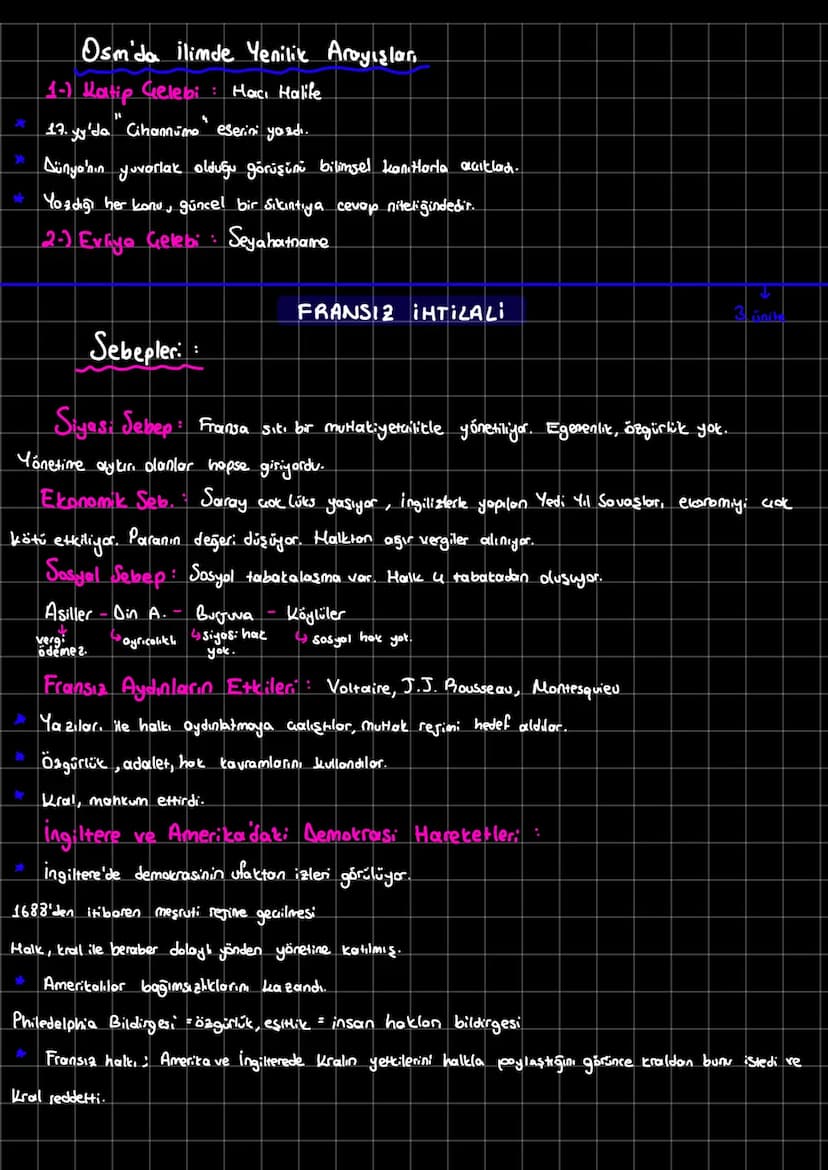 Osm'da İlimde Yenilik Arayışları
1-) Katip Çelebi : Hacı Halife
* 17. yy'da "Cihannüma" eserini yazdı.
* Dünya'nın yuvarlak olduğu görüşünü bilimsel kanıtlarla açıkladı.
* Yazdığı her konu, güncel bir sıkıntıya cevap niteliğindedir.
2-) Evliya Çelebi : Seyahatname
FRANSIZ İHTİLALİ
↓ 3. ünite
Sebepleri :
Siyasi Sebep : Fransa sıkı bir mutlakiyetçilikle yönetiliyor. Egemenlik, özgürlük yok.
Yönetime aykırı olanlar hapse giriyordu.
Ekonomik Seb. : Saray çok lüks yaşıyor, İngilizlerle yapılan Yedi Yıl Savaşları ekonomiyi çok
kötü etkiliyor. Paranın değeri düşüyor. Halktan ağır vergiler alınıyor.
Sosyal Sebep : Sosyal tabakalaşma var. Halk 4 tabakadan oluşuyor.
Asiller - Din A. - Burjuva - Köylüler
vergi ödemez. ↳ ayrıcalıklı ↳ siyasi hak yok. ↳ sosyal hak yok.
Fransız Aydınların Etkileri : Voltaire, J.J. Rousseau, Montesquieu
* Yazıları ile halkı aydınlatmaya çalıştılar, mutlak rejimi hedef aldılar.
* Özgürlük, adalet, hak kavramlarını kullandılar.
* Kral, mahkum ettirdi.
İngiltere ve Amerika'daki Demokrasi Hareketleri :
* İngiltere'de demokrasinin ufaktan izleri görülüyor.
1688'den itibaren meşruti rejime geçilmesi
Halk, kral ile beraber dolaylı yönden yönetime katılmış.
* Amerikalılar bağımsızlıklarını kazandı.
Philedelphia Bildirgesi = özgürlük, eşitlik = insan hakları bildirgesi
* Fransız halkı; Amerika ve İngilterede Kralın yetkilerini halkla paylaştığını görünce kraldan bunu istedi ve
Kral reddetti.